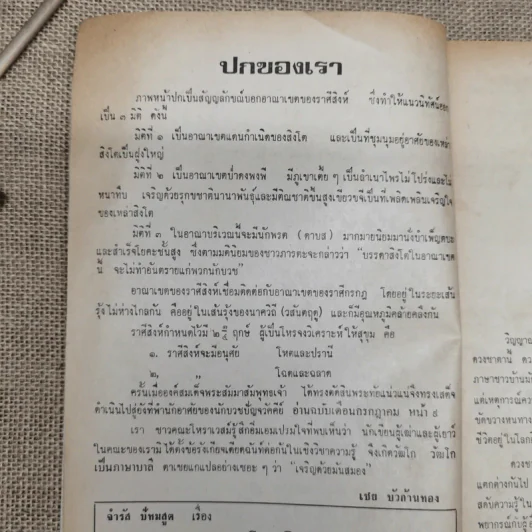 ปกของเรา
ภาพหน้าปกเป็นสัญญลักษณ์บอกอาณาเขตของราศีสิงห์ ซึ่งทำให้แนวนิทัศน์ออก
เป็น ๓ มิติ ดังนี้
มิติที่ ๑ เป็นอาณาเขตแดนกำเนิดของสิงโต และเป็นที่ชุมนุมอยู่อาศัยของเหล่า
สิงโตเป็นฝูงใหญ่
มิติที่ ๒ เป็นอาณาเขตป่าดงพงพี มีภูเขาเตี้ย ๆ เป็นลำเนาไพรไม่โปร่งและไม่
หนาทึบ เจริญด้วยรุกขชาตินานาพันธุ์และมีติณชาติขึ้นสูงเขียวขจีเป็นที่เพลิดเพลินเจริญใจ
ของเหล่าสิงโต
มิติที่ ๓ ในอาณาบริเวณนี้จะมีนักพรต (ดาบส) มากมายนิยมมานั่งบำเพ็ญตบะ
และสำเร็จโยคะชั้นสูง ซึ่งตามมตินิยมของชาวภารตะจะกล่าวว่า "บรรดาสิงโตในอาณาเขต
นี้ จะไม่ทำอันตรายแก่พวกนักบวช"
อาณาเขตของราศีสิงห์เชื่อมติดต่อกับอาณาเขตของราศีกรกฎ โดยอยู่ในระยะเส้น
รุ้งไม่ห่างไกลกัน คืออยู่ในเส้นรุ้งของนาควิถี (วสันตฤดู) และก็มีอุณหภูมิคล้ายคลึงกัน
ราศีสิงห์กำหนดไว้มี ๒ ฤกษ์ ผู้เป็นโหรจงวิเคราะห์ให้สุขุม คือ
๑. ราศีสิงห์จะมีอนุศัย โหดและปรานี
๒. ,, โฉดและฉลาด
ครั้นเมื่อองค์สมเด็จพระสัมมาสัมพุทธเจ้า ได้ทรงตัดสินพระทัยแน่วแน่จึงทรงเสด็จ
ดำเนินไปสู่ยังที่พำนักอาศัยของนักบวชปัญจวัคคีย์ อ่านฉบับเดือนกรกฎาคม หน้า ๙
เรา ชาวคณะโหราเวสม์รู้สึกอิ่มเอมเปรมใจที่พบเห็นว่า นักเขียนผู้เฒ่าและผู้เยาว์
ในคณะของเรามิได้ตั้งข้อรังเกียจเดียดฉันท์ต่อกันในเชิงวิชาความรู้ จึงเกิดวัฒโก วัฒโก
เป็นภาษาบาลี ตาเชยแกแปลอย่างเชยะ ๆ ว่า "เจริญด้วยมันสมอง"
เชย บัวก้านทอง
จำรัส ปัทมสูต เรื่อง
วิญญาณ
ดวงชาตานี้
ภาษาชาวบ้าน
แต่เหตุการณ์
ขัดขวางหนทาง
ชีวิตอยู่ในโลก
ดวงชา
แตกต่างกันไป
สดับความรู้ใน
พยากรณ์กับผู้